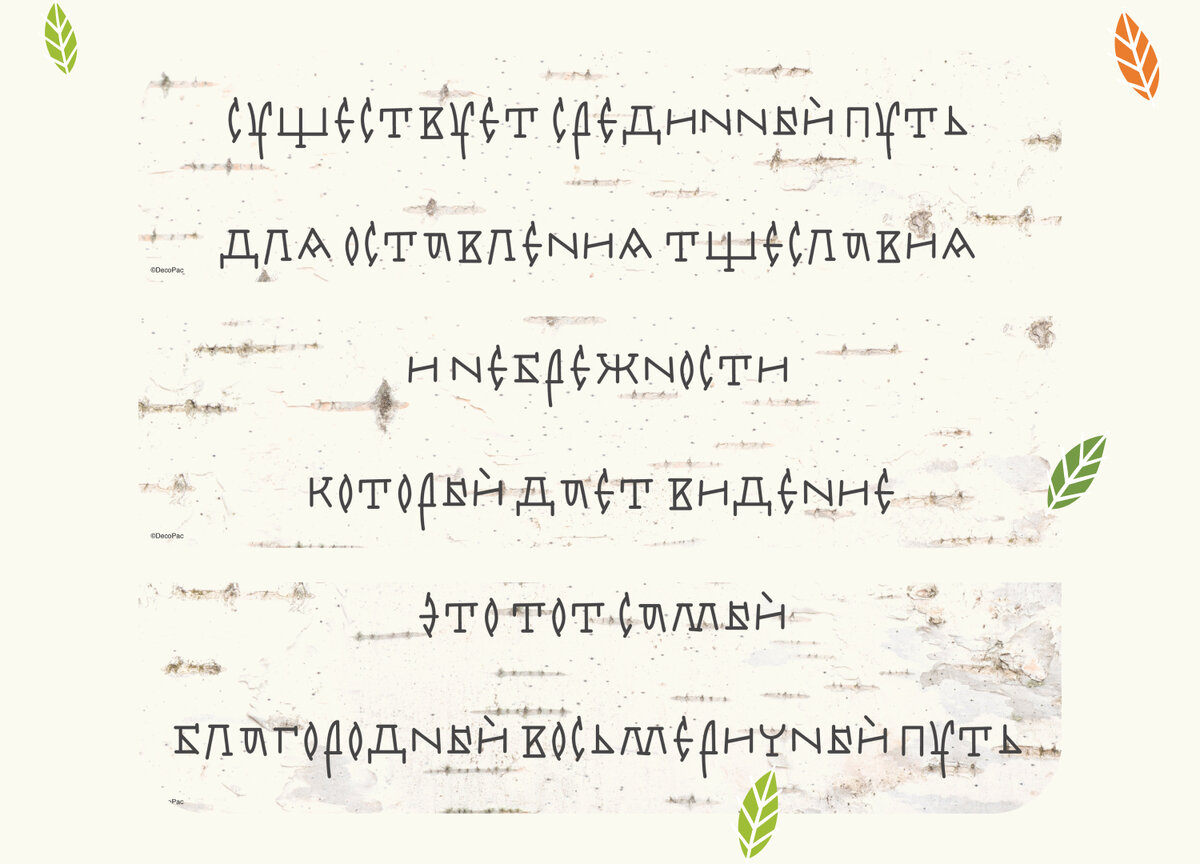 СУЩЕСТВУЕТ СРЕДИННЫЙ ПУТЬ
ДЛЯ ОСТАВЛЕНИЯ ТЩЕСЛАВИЯ
©DecoPac
И НЕБРЕЖНОСТИ
КОТОРЫЙ ДАЕТ ВИДЕНИЕ
©DecoPac
ЭТО ТОТ САМЫЙ
БЛАГОРОДНЫЙ ВОСЬМЕРИЧНЫЙ ПУТЬ
Pac